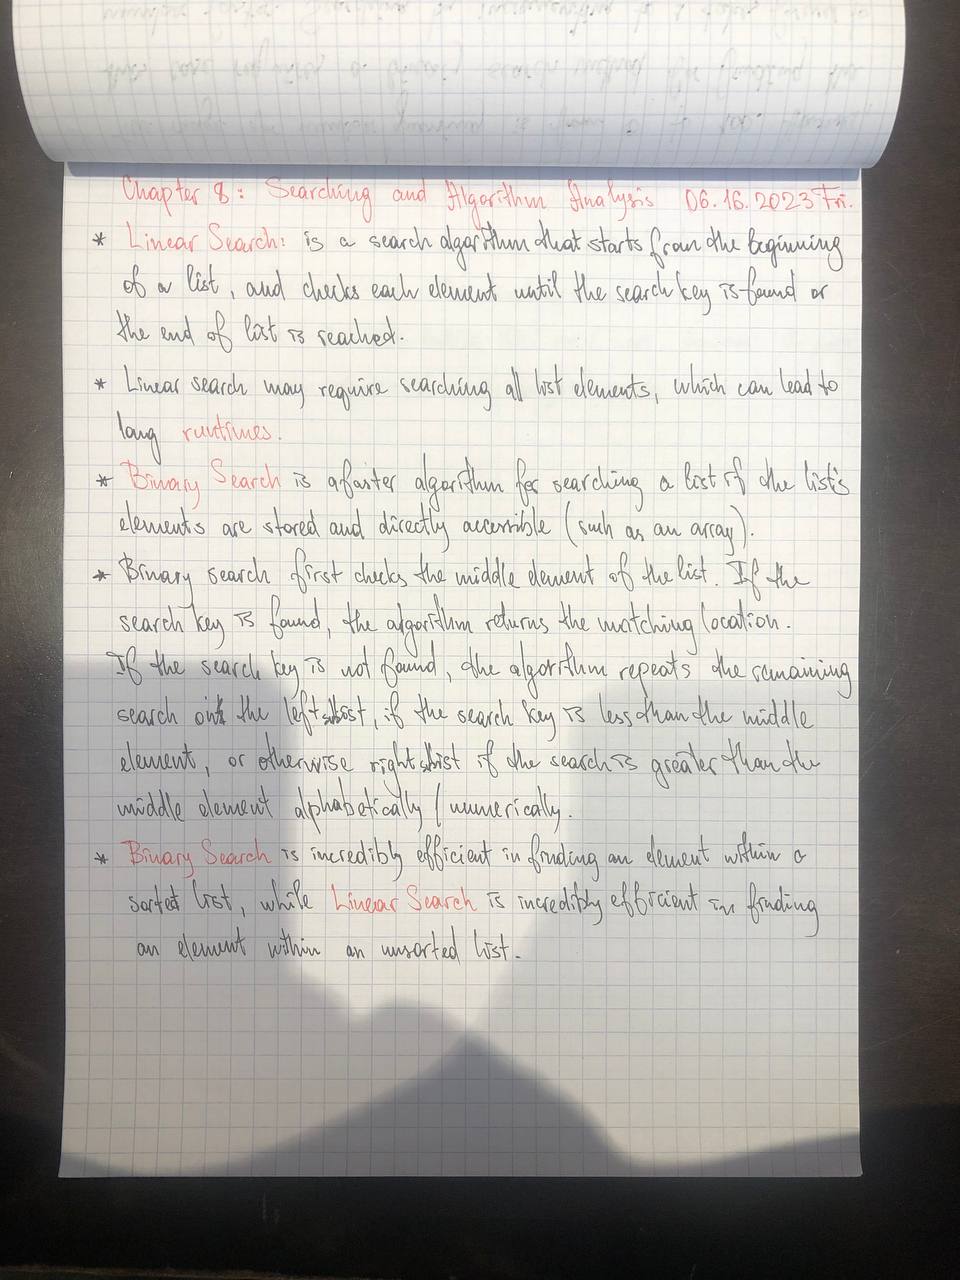 Chapter 8: Searching and Algorithm Analysis 06.16.2023 Fri.
* Linear Search: is a search algorithm that starts from the beginning
of a list, and checks each element until the search key is found or
the end of list is reached.
* Linear search may require searching all list elements, which can lead to
long runtimes.
* Binary Search is a faster algorithm for searching a list if the list's
elements are stored and directly accessible (such as an array).
* Binary search first checks the middle element of the list. If the
search key is found, the algorithm returns the matching location.
If the search key is not found, the algorithm repeats the remaining
search on the left sublist, if the search key is less than the middle
element, or otherwise right sublist if the search is greater than the
middle element alphabetically / numerically.
* Binary Search is incredibly efficient in finding an element within a
sorted list, while Linear Search is incredibly efficient in finding
an element within an unsorted list.